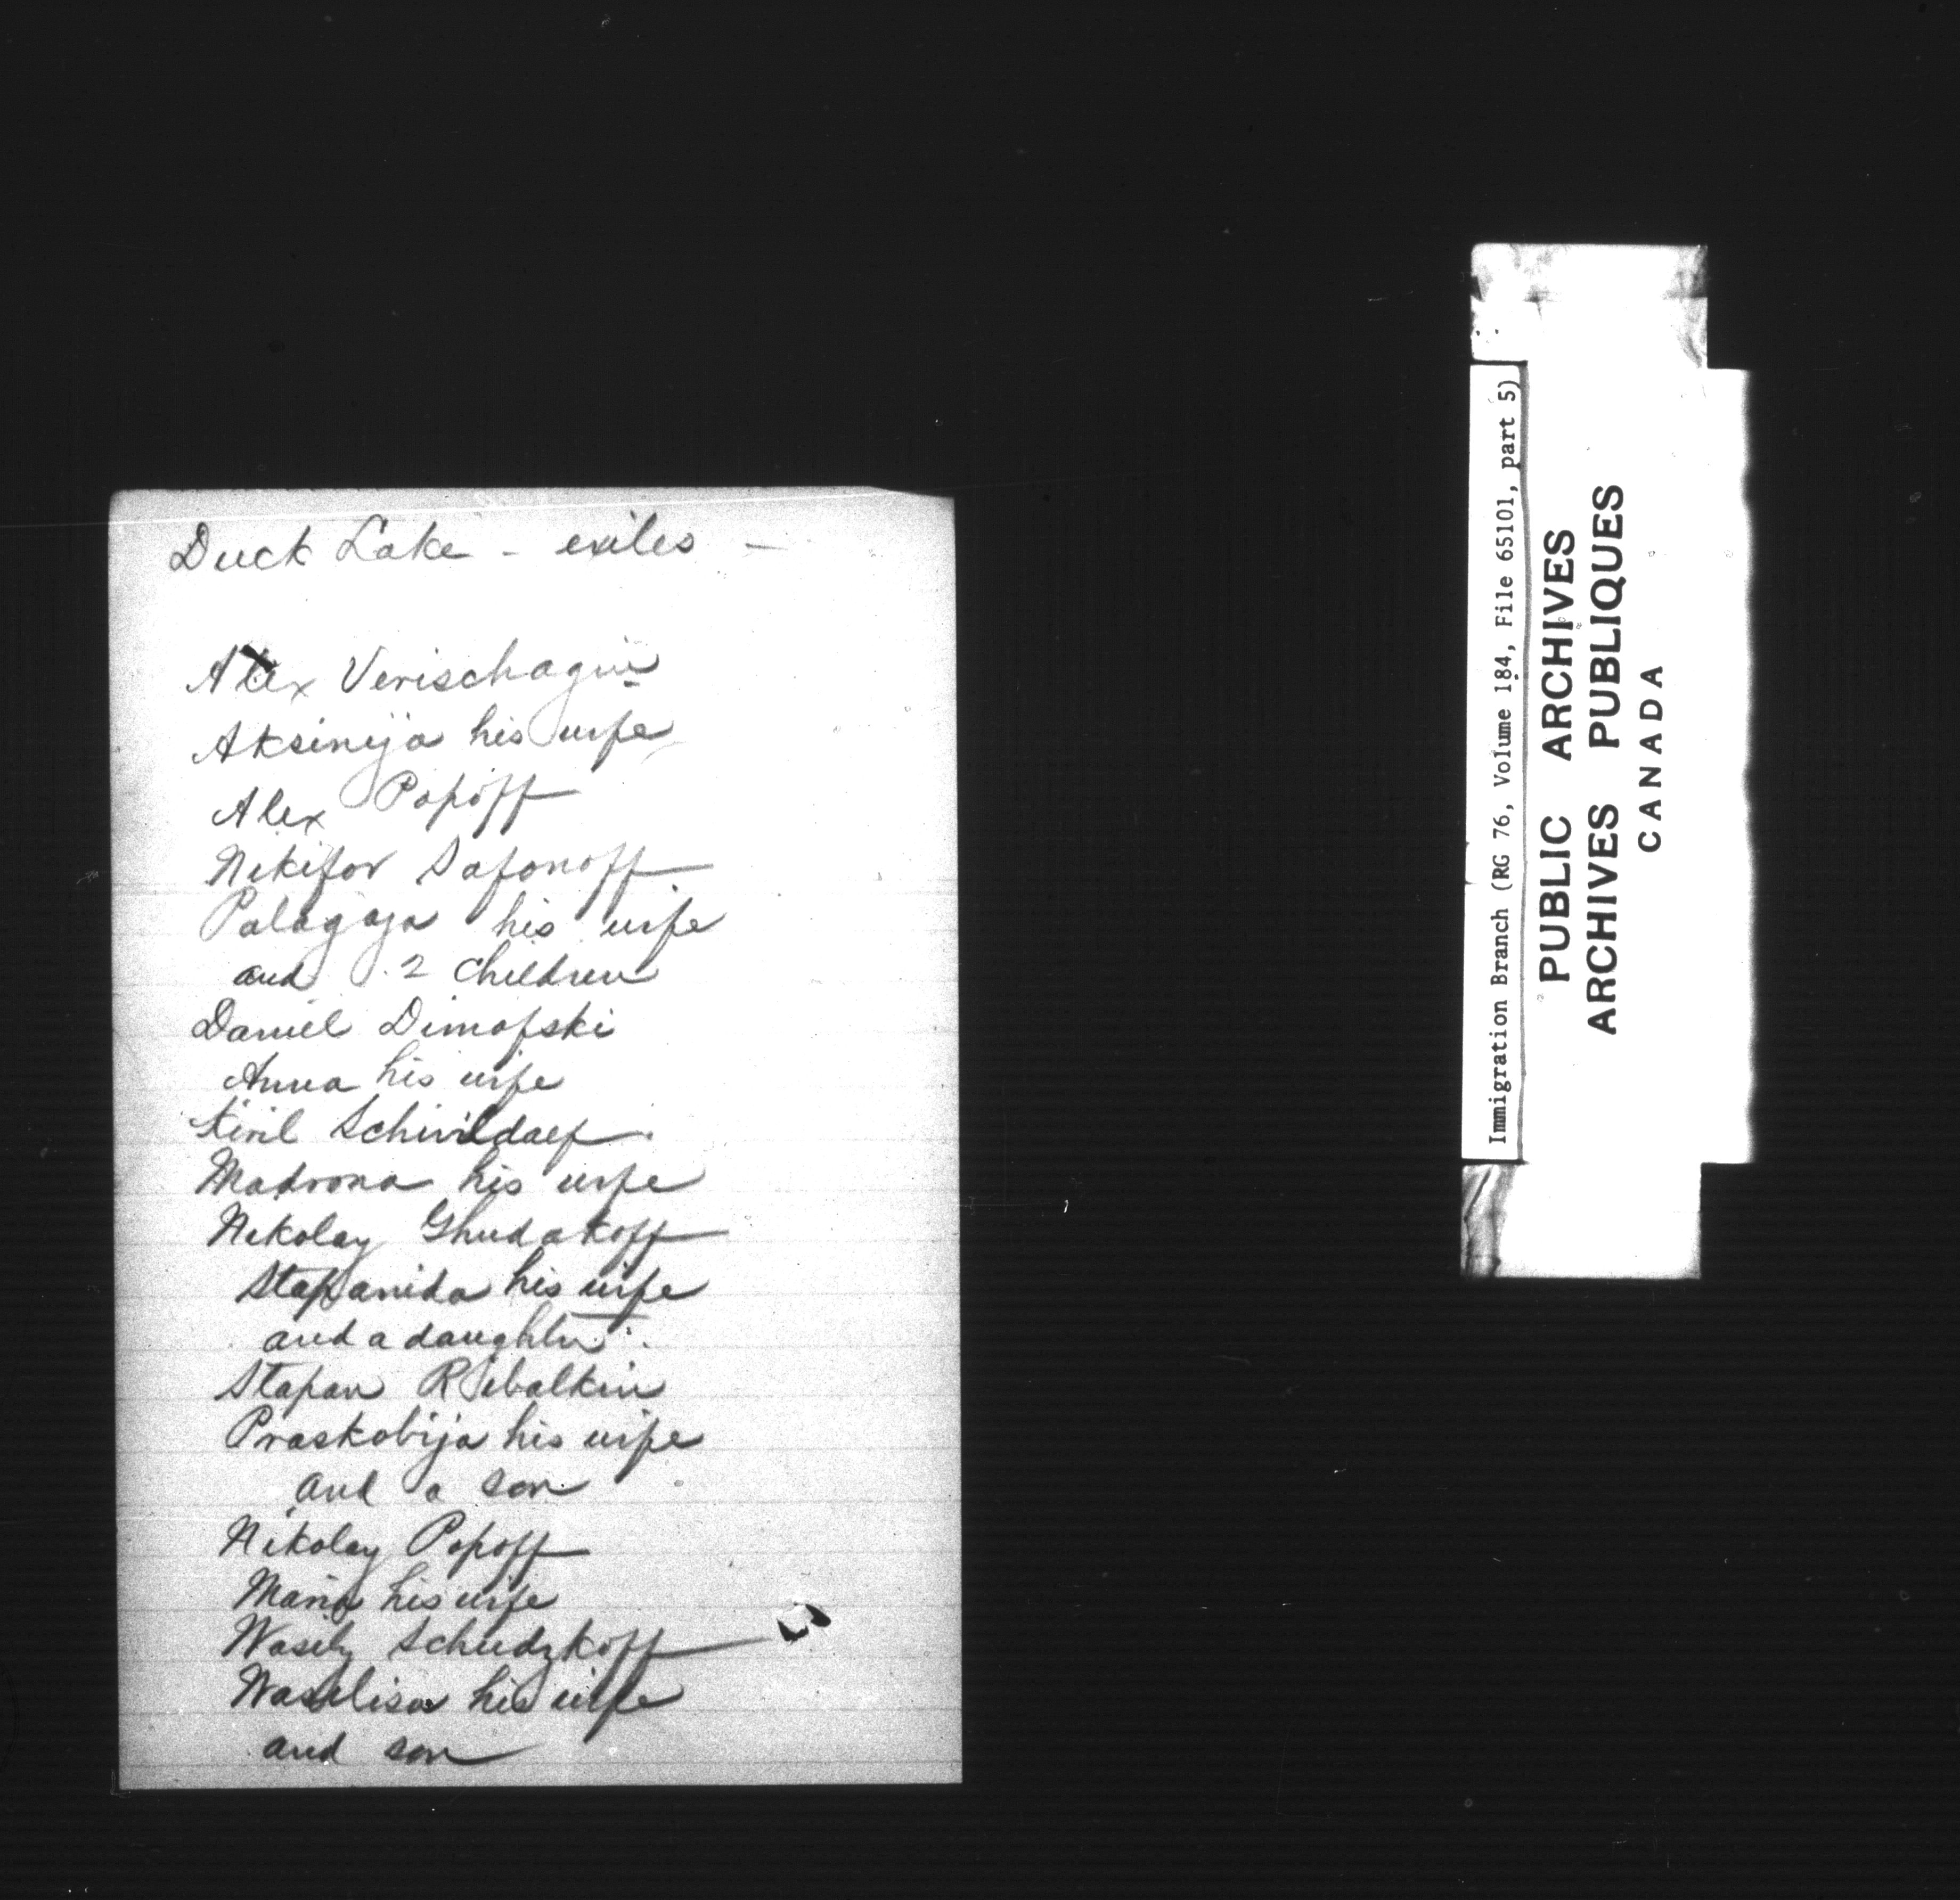 Duck Lake - exiles -
Alex Verischagin
Aksinija his wife
Alex Popoff
Nikifor Safonoff
Palagaja his wife
and 2 children
Daniel Dimofski
Anna his wife
Kiril Schivildaef
Madrona his wife
Nikolay Ghudakoff
Stapanida his wife
and a daughter
Stapan Ribalkin
Praskobija his wife
and a son
Nikolay Popoff
Maria his wife
Wasily Schudzkoff
Waselisa his wife
and son
Immigration Branch (RG 76, Volume 184, File 65101, part 5)
PUBLIC ARCHIVES
ARCHIVES PUBLIQUES
CANADA